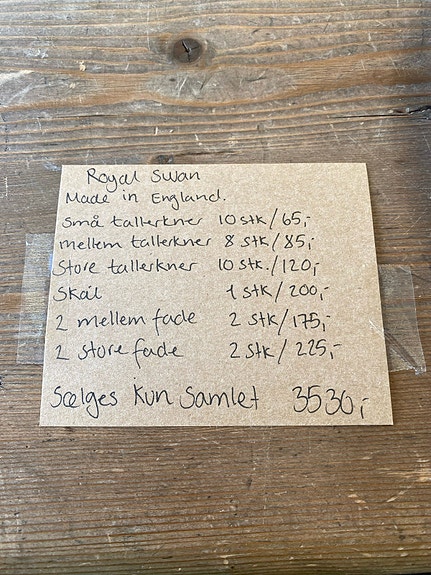 Royal Swan
Made in England.
Små tallerkner 10 stk/65,-
mellem tallerkner 8 stk/85,-
Store tallerkner 10 stk./120,-
Skål 1 stk/200,-
2 mellem fade 2 stk/175,-
2 store fade 2 stk/225,-
Sælges kun samlet 3530,-